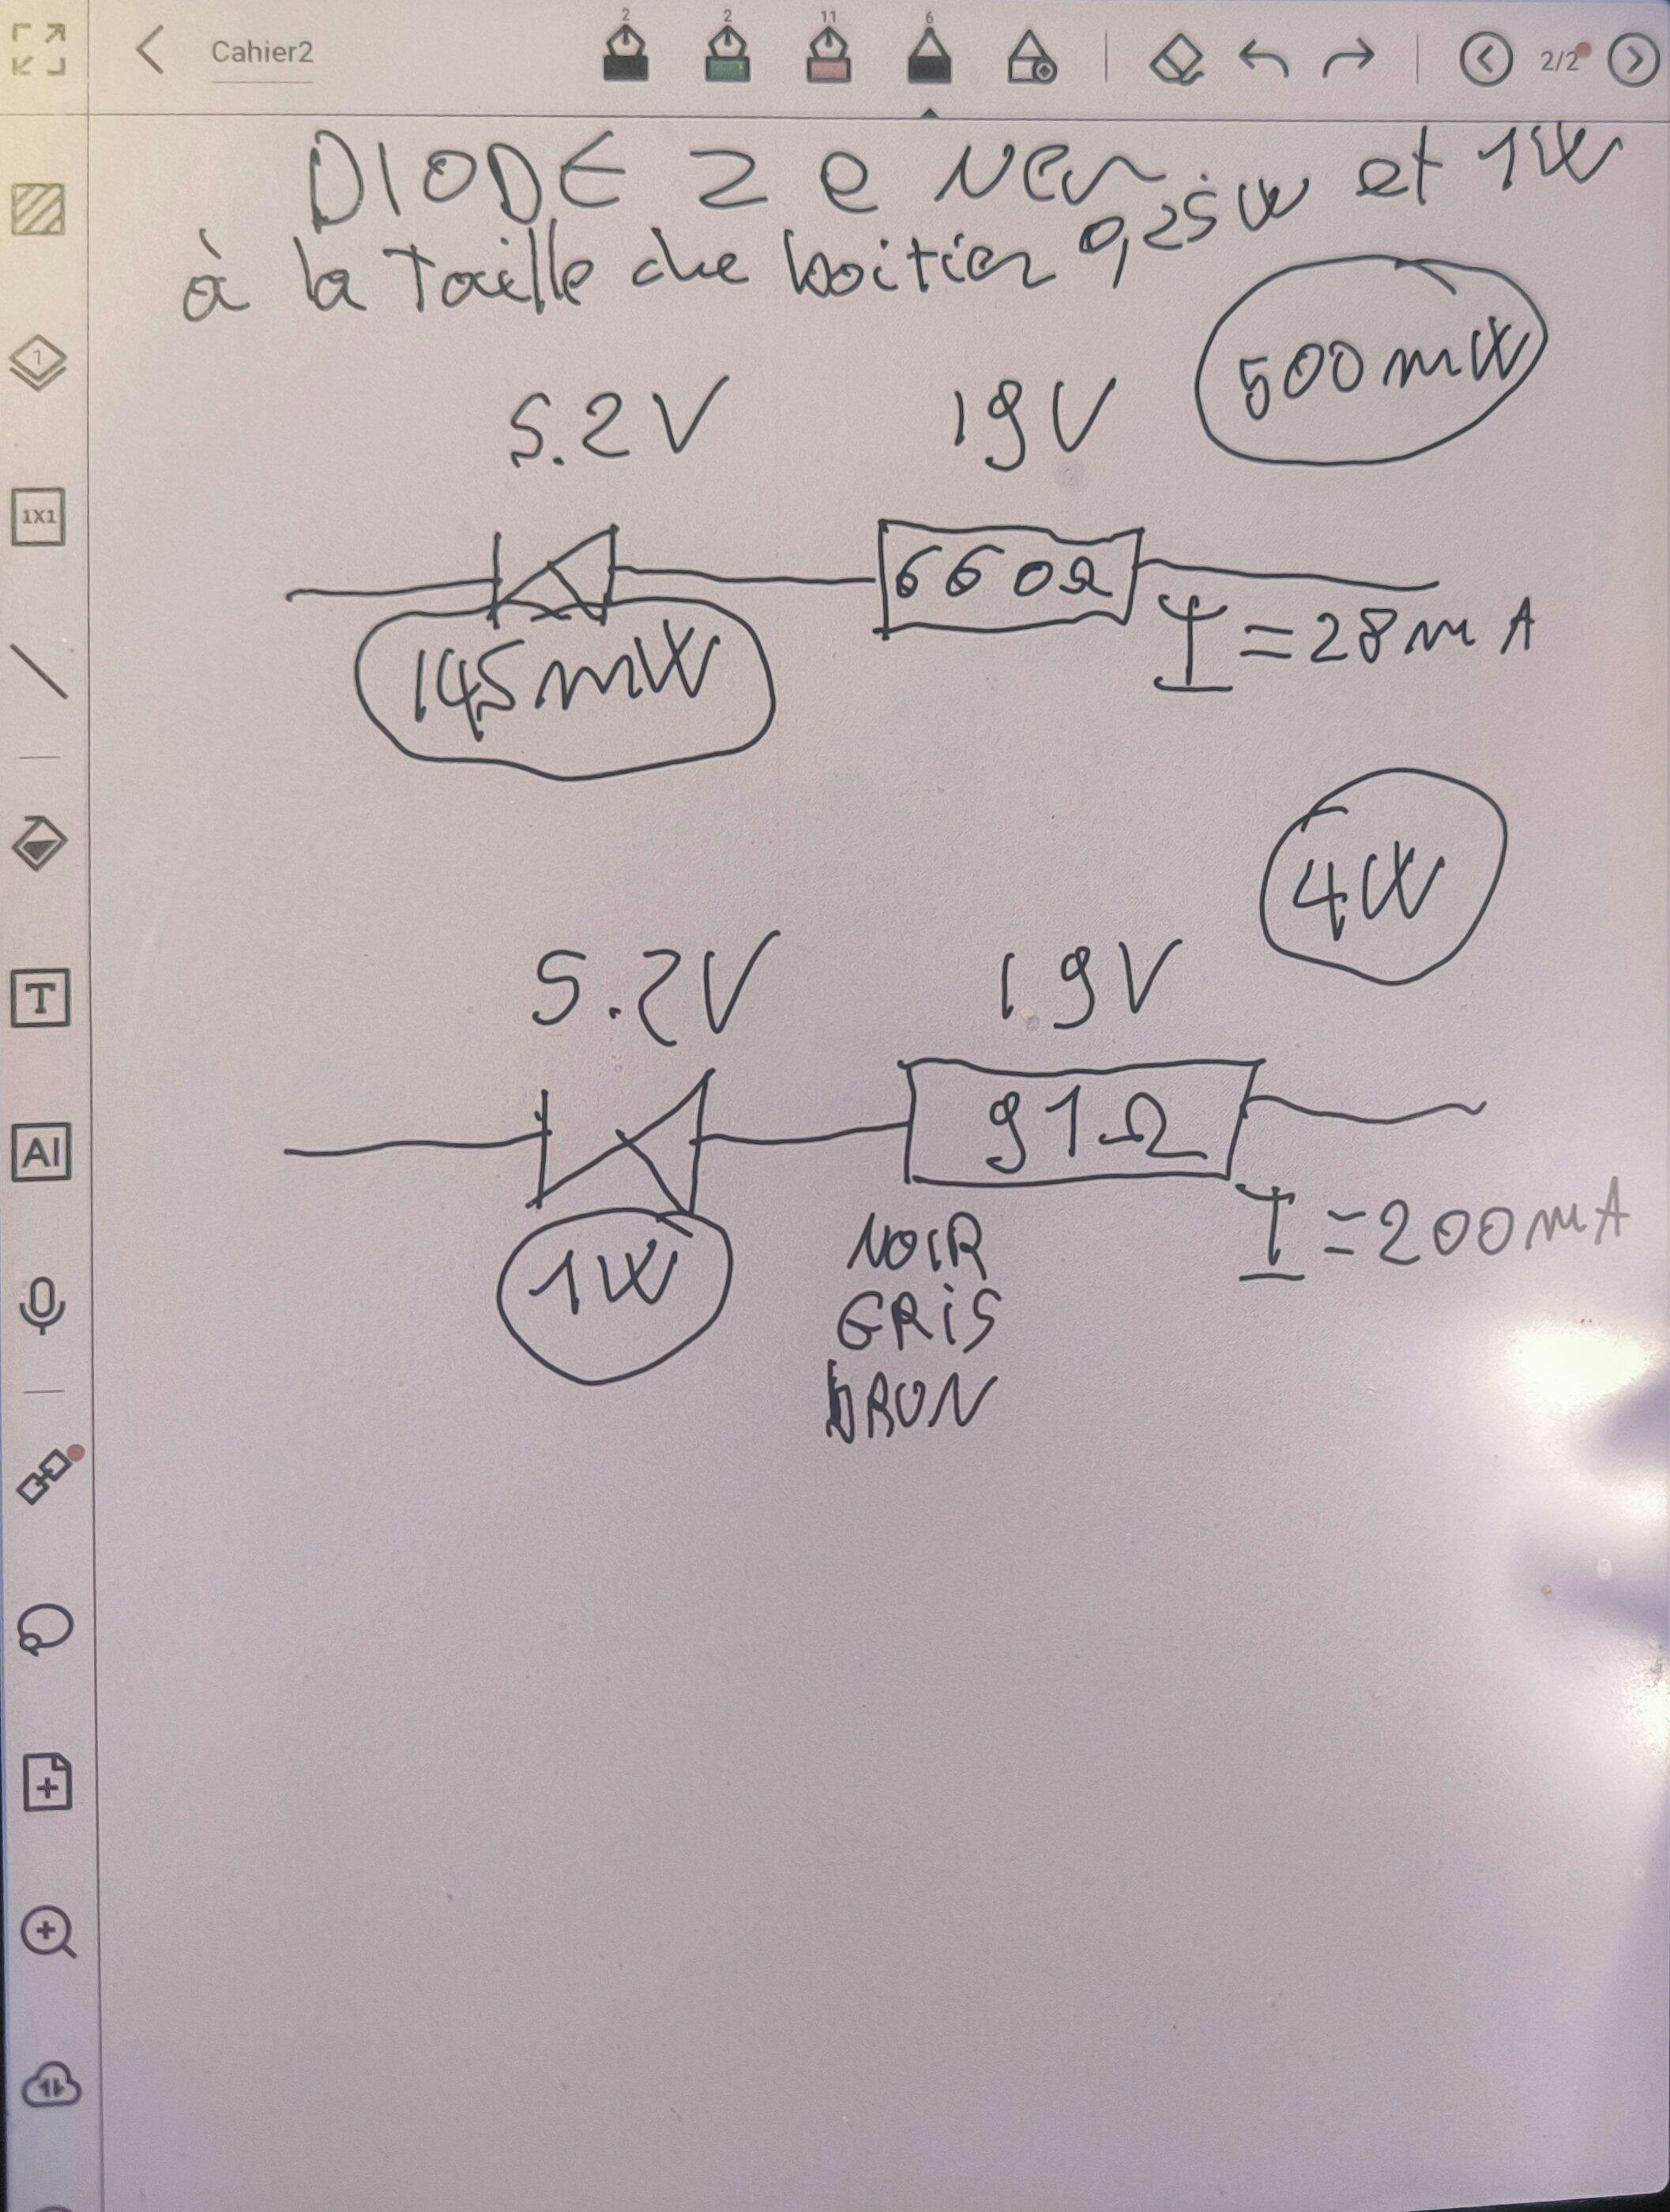 2 2 11 6
Cahier2
2/2
DIODE ZENER 0,25W et 1W
à la taille du boitier
500mW
5.2V 19V
660Ω
145mW
I=28mA
4W
5.2V 19V
91Ω
1W
I=200mA
NOIR
GRIS
BRUN
1
1X1
T
AI